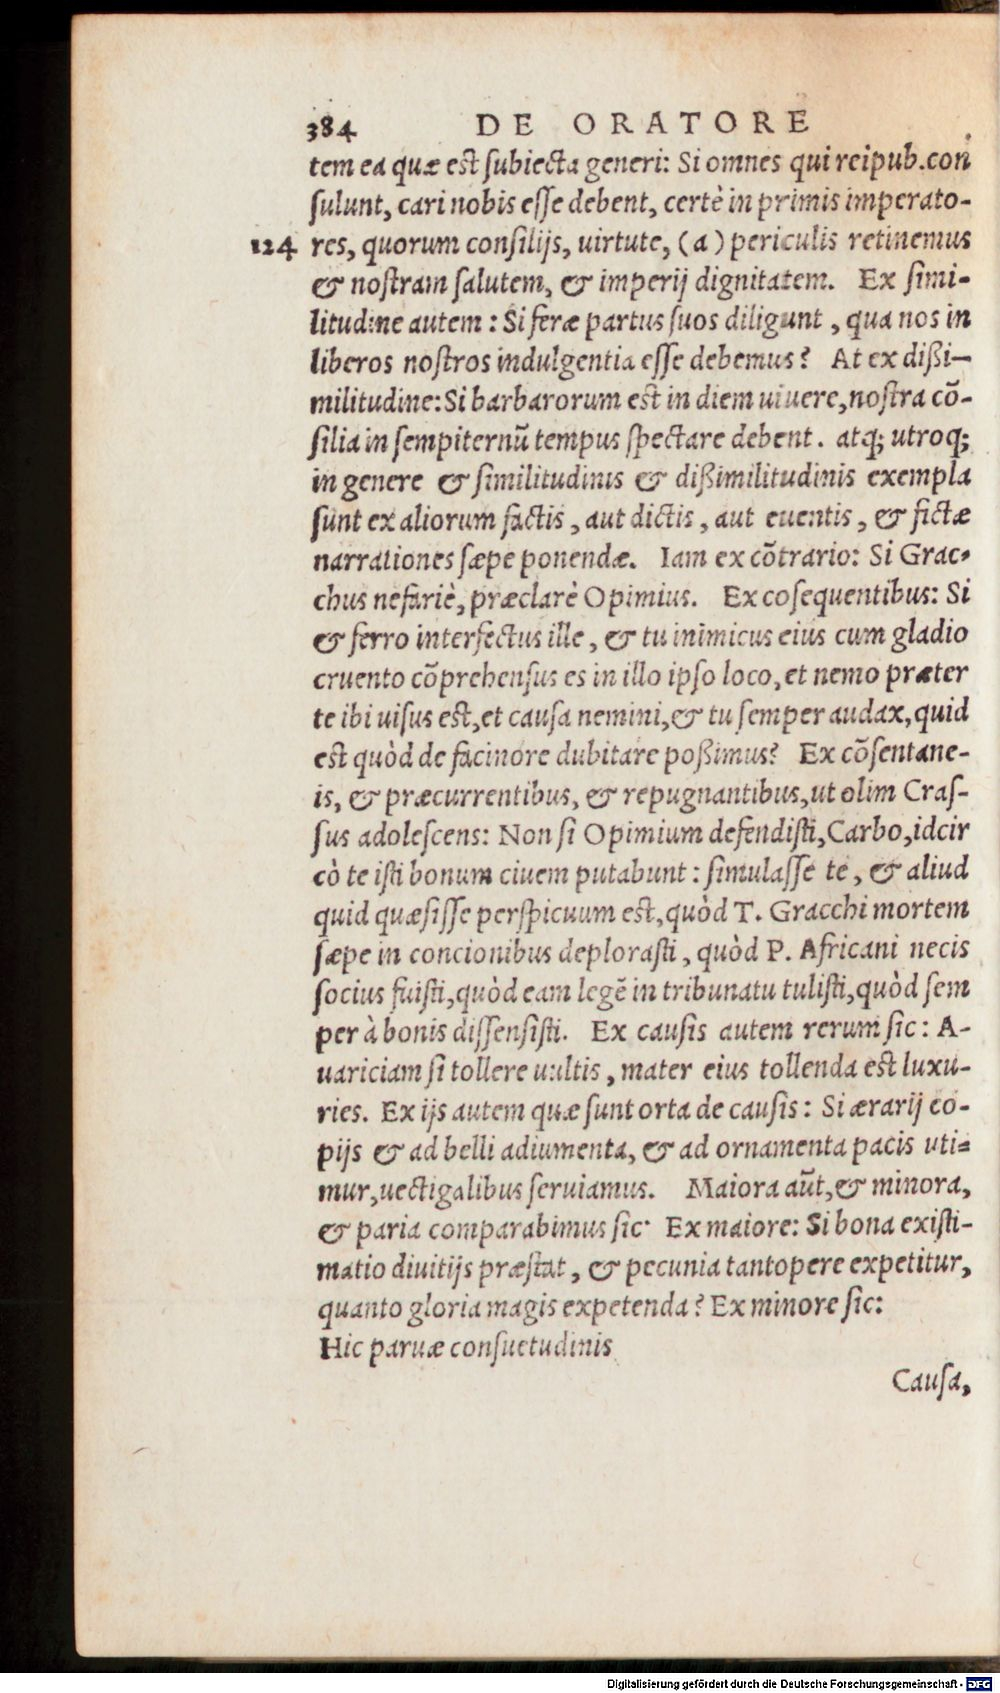 384 DE ORATORE
tem ea quæ est ſubiecta generi: Si omnes qui reipub.con
ſulunt, cari nobis eſſe debent, certè in primis imperato-
124 res, quorum conſilijs, uirtute, (a) periculis retinemus
& noſtram ſalutem, & imperij dignitatem. Ex ſimi-
litudine autem : Si feræ partus ſuos diligunt , qua nos in
liberos noſtros indulgentia eſſe debemus? At ex dißi-
militudine: Si barbarorum est in diem uiuere, noſtra cõ-
ſilia in ſempiternũ tempus ſpectare debent. atq; utroq;
in genere & ſimilitudinis & dißimilitudinis exempla
ſunt ex aliorum factis , aut dictis , aut euentis , & fictæ
narrationes ſæpe ponendæ. Iam ex cõtrario: Si Grac-
chus nefariè, præclarè Opimius. Ex coſequentibus: Si
& ferro interfectus ille , & tu inimicus eius cum gladio
cruento cõprehenſus es in illo ipſo loco, et nemo præter
te ibi uiſus est, et cauſa nemini, & tu ſemper audax, quid
est quòd de facinore dubitare poßimus? Ex cõſentane-
is, & præcurrentibus, & repugnantibus, ut olim Craſ-
ſus adoleſcens: Non ſi Opimium defendiſti, Carbo, idcir
cò te iſti bonum ciuem putabunt : ſimulaſſe te , & aliud
quid quæſiſſe perſpicuum est, quòd T. Gracchi mortem
ſæpe in concionibus deploraſti , quòd P. Africani necis
ſocius fuiſti, quòd eam legẽ in tribunatu tuliſti, quòd ſem
per à bonis diſſenſiſti. Ex cauſis autem rerum ſic: A-
uariciam ſi tollere uultis , mater eius tollenda est luxu-
ries. Ex ijs autem quæ ſunt orta de cauſis : Si ærarij co-
pijs & ad belli adiumenta, & ad ornamenta pacis uti-
mur, uectigalibus ſeruiamus. Maiora aũt, & minora,
& paria comparabimus ſic· Ex maiore: Si bona exiſti-
matio diuitijs præstat , & pecunia tantopere expetitur,
quanto gloria magis expetenda? Ex minore ſic:
Hic paruæ conſuetudinis
Cauſa,
Digitalisierung gefördert durch die Deutsche Forschungsgemeinschaft - DFG